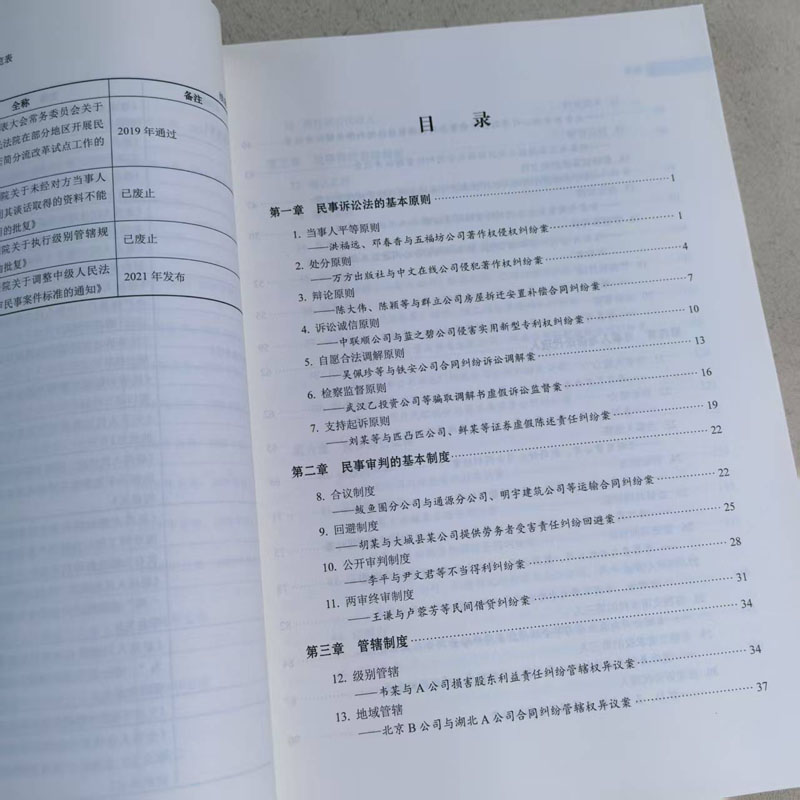 览表
全称
备注
表大会常务委员会关于
民法院在部分地区开展民
繁简分流改革试点工作的
2019年通过
院关于未经对方当事人
制其谈话取得的资料不能
的批复》
已废止
院关于执行级别管辖规
的批复》
已废止
院关于调整中级人民法
审民事案件标准的通知》
2021年发布
目 录
第一章 民事诉讼法的基本原则 1
1. 当事人平等原则
——洪福远、邓春香与五福坊公司著作权侵权纠纷案 1
2. 处分原则
——万方出版社与中文在线公司侵犯著作权纠纷案 4
3. 辩论原则
——陈大伟、陈颖等与群立公司房屋拆迁安置补偿合同纠纷案 7
4. 诉讼诚信原则
——中联顺公司与蓝之碧公司侵害实用新型专利权纠纷案 10
5. 自愿合法调解原则
——吴佩珍等与铁安公司合同纠纷诉讼调解案 13
6. 检察监督原则
——武汉乙投资公司等骗取调解书虚假诉讼监督案 16
7. 支持起诉原则
——刘某等与匹凸匹公司、鲜某等证券虚假陈述责任纠纷案 19
第二章 民事审判的基本制度 22
8. 合议制度
——鲅鱼圈分公司与通源分公司、明宇建筑公司等运输合同纠纷案 22
9. 回避制度
——胡某与大城县某公司提供劳务者受害责任纠纷回避案 25
10. 公开审判制度
——李平与尹文君等不当得利纠纷案 28
11. 两审终审制度
——王谦与卢蓉芳等民间借贷纠纷案 31
第三章 管辖制度 34
12. 级别管辖
——韦某与A公司损害股东利益责任纠纷管辖权异议案 34
13. 地域管辖
——北京B公司与湖北A公司合同纠纷管辖权异议案 37